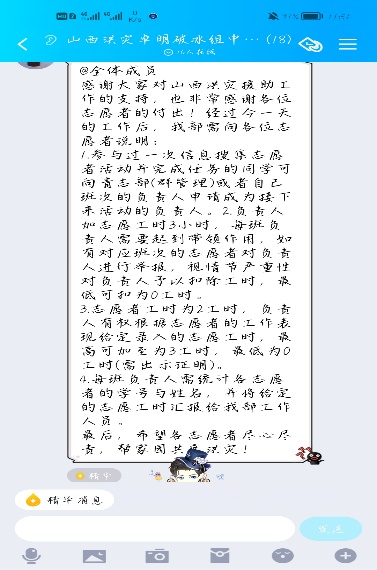 山西洪灾卓明破冰组中…(18)
@全体成员
感谢大家对山西洪灾援助工
作的支持，也非常感谢各位
志愿者的付出！经过今一天
的工作后，我部需向各位志
愿者说明：
1.参与过一次信息搜集志愿
者活动并完成任务的同学可
向青志部(群管理)或者自己
班次的负责人申请成为接下
来活动的负责人。2.负责人
加志愿工时3小时，每班负
责人需要起到带领作用，如
有对应班次的志愿者对负责
人进行举报，视情节严重性
对负责人予以扣除工时，最
低可扣为0工时。
3.志愿者工时为2工时，负责
人有权根据志愿者的工作表
现给定录入的志愿工时，最
高可加至为3工时，最低为0
工时(需出示证明)。
4.每班负责人需统计各志愿
者的学号与姓名，并将给定
的志愿工时汇报给我部工作
人员。
最后，希望各志愿者尽心尽
责，帮家园共渡洪灾！
精华
精华消息
发送